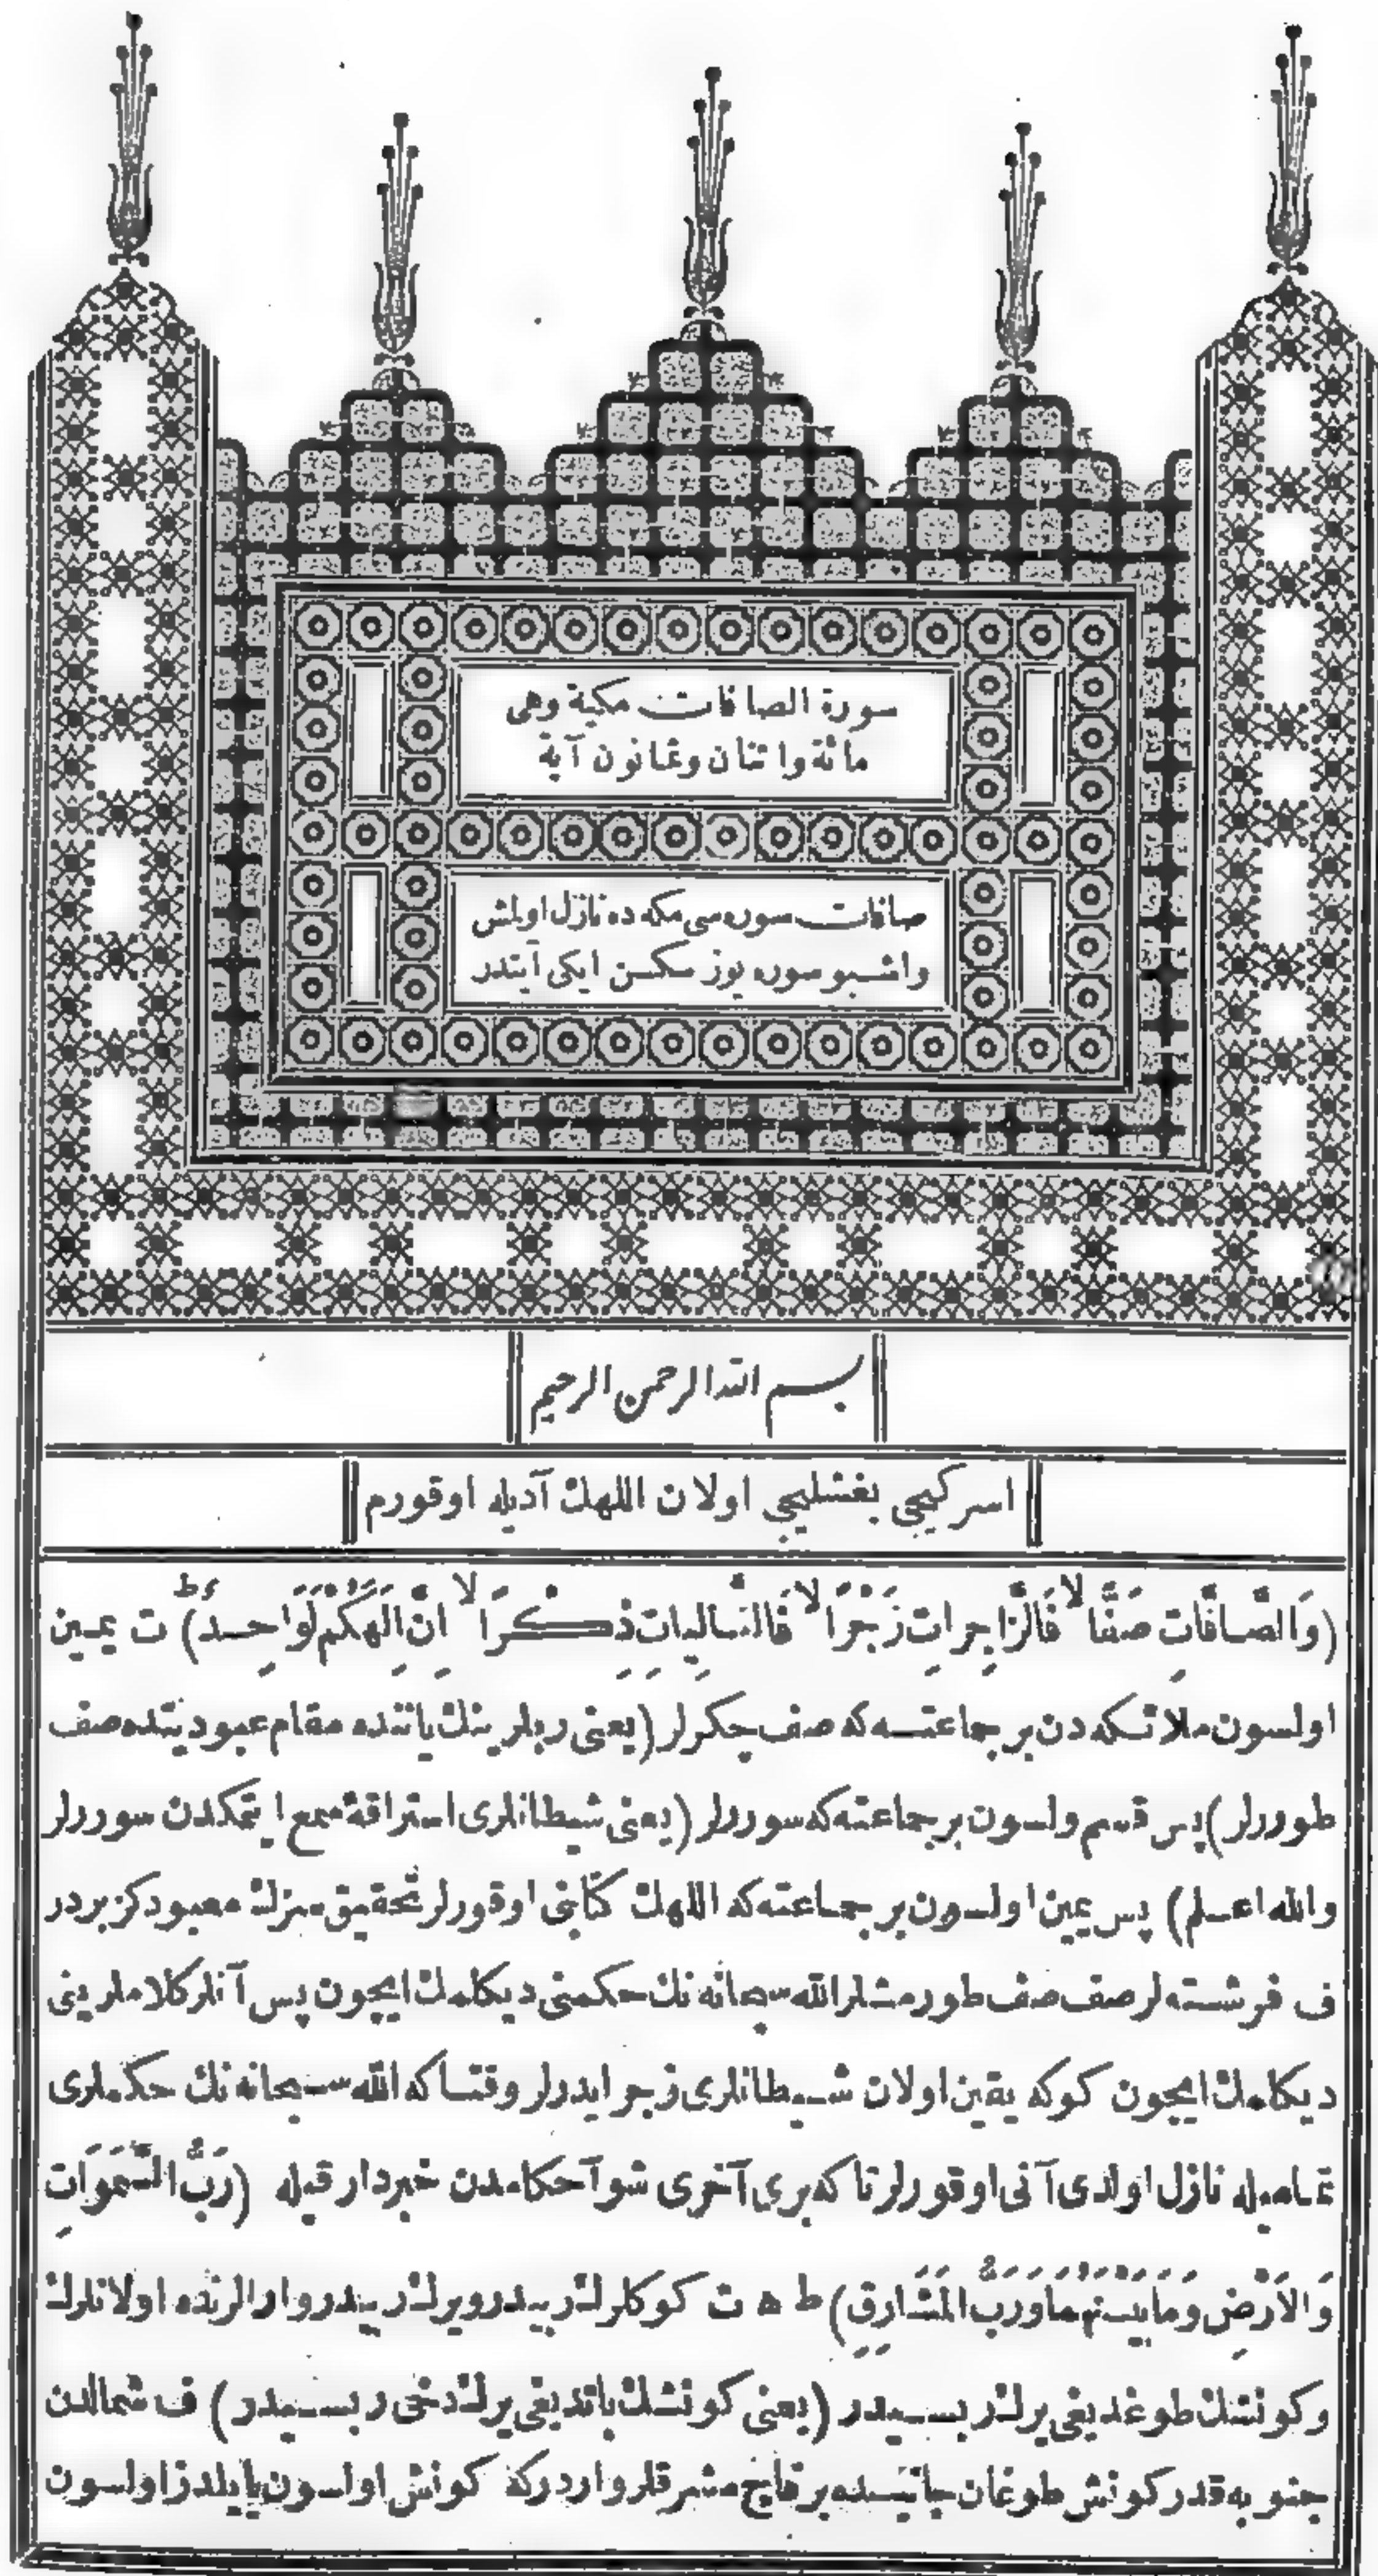 سورة الصافات مكية وهى
مائة واثنان وثمانون آية
صافات سوره سى مكه ده نازل اولمش
واشبو سوره يوز سكسن ايكى آيتدر
بسم الله الرحمن الرحيم
اسركيجى بغشليجى اولان اللهك آديله اوقورم
(وَالصَّافَّاتِ صَفًّا لا فَالزَّاجِرَاتِ زَجْرًا لا فَالتَّالِيَاتِ ذِكْرًا لا اِنَّ اِلَهَكُمْ لَوَاحِدٌ ط) ت يمين
اولسون ملائكه دن بر جماعته كه صف چكرلر (يعنى ربلرينك ياننده مقام عبوديتده صف
طوررلر) پس قسم ولسون بر جماعته كه سوررلر (يعنى شيطانلرى استراقهٔ سمع ايتمكدن سوررلر
والله اعلم) پس يمين اولسون بر جماعته كه اللهك كتابنى اوقورلر تحقيق سزك معبودكز بردر
ف فرشته لر صف صف طورمشلر الله سبحانه نك حكمنى ديكلمك ايچون پس آنلر كلاملرينى
ديكلمك ايچون كوكه يقين اولان شيطانلرى زجر ايدرلر وقتا كه الله سبحانه نك حكملرى
تماميله نازل اولدى آنى اوقورلر تا كه برى آخرى شو آحكامدن خبردار قيله (رَبُّ السَّمَوَاتِ
وَالاَرْضِ وَمَا بَيْنَهُمَا وَرَبُّ المَشَارِقِ) ط ه ت كوكلرك ربيدر ويرك ربيدر وارالرنده اولانلرك
وكونشك طوغديغى يرك ربسيدر (يعنى كونشك باتديغى يرك دخى ربسيدر) ف شمالدن
جنوبه قدر كونش طوغان جانبسده بر قاچ مشرقلر واردر كه كونش اولسون يا يلدز اولسون